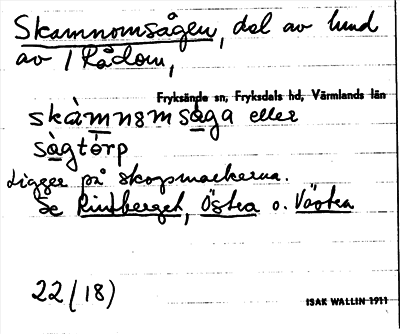 Skamnomsågen, del av lund
av / Rådom,
Fryksände sn, Fryksdals hd, Värmlands län
skàmnɘmsåga eller
sàgtȯrp
Ligger på skogsmarkerna.
Se Rintberget, Östra o. Västra
22 (18)
ISAK WALLIN 1911